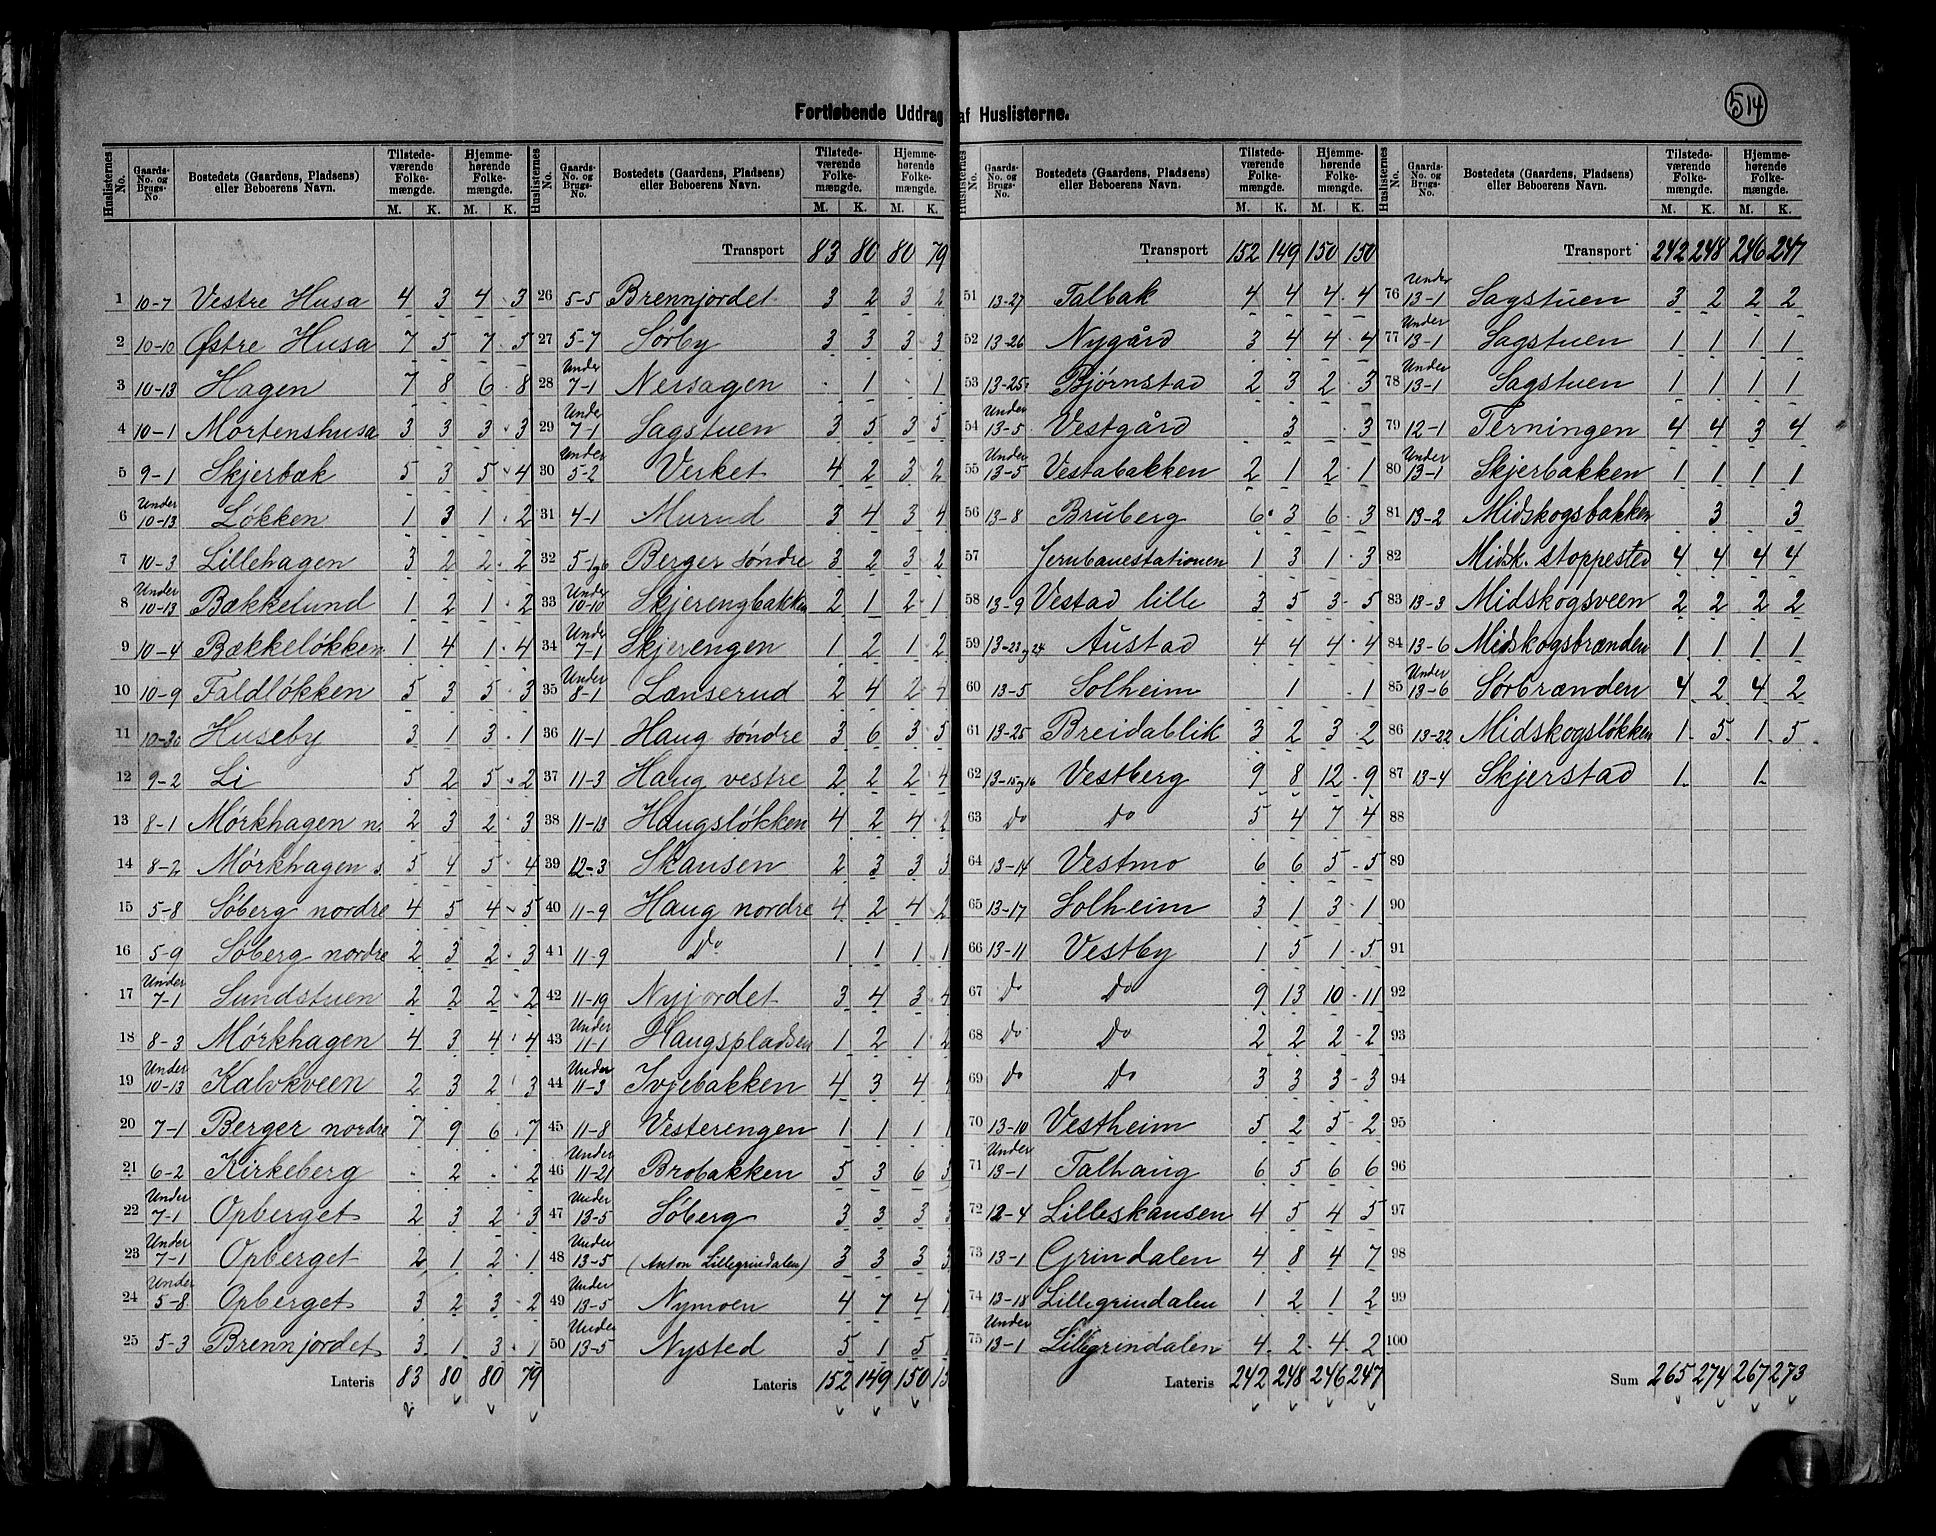 Fortløbende Uddrag af Huslisterne.
514
Huslisternes No. | Gaards-No. og Brugs-No | Bostedets (Gaardens, Pladsens) eller Beboerens Navn. | Tilstedeværende Folkemængde. M. K. | Hjemmehørende Folkemængde. M. K.
1 10-7 Vestre Husa 4 3 4 3
2 10-10 Østre Husa 7 5 7 5
3 10-13 Hagen 7 8 6 8
4 10-1 Mortenshusa 3 3 3 3
5 9-1 Skjerbæk 5 3 5 4
6 Under 10-13 Løkken 1 3 1 2
7 10-3 Lillehagen 3 2 2 2
8 Under 10-13 Bækkelund 1 2 1 2
9 10-4 Bækkeløkken 1 4 1 4
10 10-9 Faldløkken 5 3 5 3
11 Huseby 3 1 3 1
12 9-2 Li 5 2 5 2
13 8-1 Mørkhagen n. 2 3 2 3
14 8-2 Mørkhagen s. 5 4 5 4
15 5-8 Søberg nordre 4 5 4 5
16 5-9 Søberg nordre 2 3 2 3
17 Under 7-1 Sundstuen 2 2 2 2
18 8-3 Mørkhagen 4 3 4 4
19 Under 10-13 Kalvkveen 2 3 2 3
20 7-1 Berger nordre 7 9 6 7
21 6-2 Kirkeberg . 2 . 2
22 Under 7-1 Opberget 2 3 2 3
23 Under 7-1 Opberget 2 1 2 1
24 Under 5-8 Opberget 3 2 3 2
25 5-3 Brennjordet 3 1 3 1
Lateris 83 80 80 79
Huslisternes No. | Gaards-No. og Brugs-No. | Bostedets (Gaardens, Pladsens) eller Beboerens Navn. | Tilstedeværende Folkemængde. M. K. | Hjemmehørende Folkemængde. M. K.
Transport 83 80 80 79
26 5-5 Brennjordet 3 2 3 2
27 5-7 Sørby 3 3 3 3
28 Under 7-1 Nersagen . 1 . 1
29 Under 7-1 Sagstuen 3 5 3 5
30 Under 5-2 Verket 4 2 3 2
31 4-1 Murud 3 4 3 4
32 Berger søndre 3 2 3 2
33 Under 10-10 Skjerengbakken 2 1 2 1
34 Under 7-1 Skjerengen 1 2 1 2
35 Under 8-1 Lanserud 2 4 2 4
36 11-1 Haug søndre 3 6 3 5
37 11-3 Haug vestre 2 2 2 4
38 11-13 Haugsløkken 4 2 4 2
39 12-3 Skansen 2 3 3 3
40 11-9 Haug nordre 4 2 4 2
41 11-9 Do 1 1 1 1
42 11-19 Nyjordet 3 4 3 4
43 Under 11-1 Haugspladsen 1 2 1 2
44 Under 11-3 Ivjebakken 4 3 4
45 11-8 Vesterengen 1 1 1 1
46 Under 11-21 Brobakken 5 3 6 3
47 Under 13-5 Søberg 3 3 3 3
48 Under 13-5 (Anton Lillegrindalen) 3 3 3 3
49 Under 13-5 Nymoen 4 7 4
50 Under 13-5 Nysted 5 1 5 1
Lateris 152 149 150 15
Huslisternes No. | Gaards-No. og Brugs-No. | Bostedets (Gaardens, Pladsens) eller Beboerens Navn. | Tilstedeværende Folkemængde. M. K. | Hjemmehørende Folkemængde. M. K.
Transport 152 149 150 150
51 13-27 Talbak 4 4 4 4
52 13-26 Nygård 3 4 4 4
53 13-25 Bjørnstad 2 3 2 3
54 Under 13-5 Vestgård 3 3
55 Under 13-5 Vestabakken 2 1 2 1
56 13-8 Bruberg 6 3 6 3
57 Jernbanestationen 1 3 1 3
58 13-9 Vestad lille 3 5 3 5
59 13-23 og 24 Austad 4 4 4 4
60 13-5 Solheim 1 1
61 13-25 Breidablik 3 2 3 2
62 13-15 og 16 Vestberg 9 8 12 9
63 Do Do 5 4 7 4
64 13-14 Vestmo 6 6 5 5
65 13-17 Solheim 3 1 3 1
66 13-11 Vestby 1 5 1 5
67 Do Do 9 13 10 11
68 Do Do 2 2 2 2
69 Do Do 3 3 3 3
70 13-10 Vestheim 5 2 5 2
71 Under 13-1 Talhaug 6 5 6 6
72 12-4 Lilleskansen 4 5 4 5
73 13-1 Grindalen 4 8 4 7
74 13-18 Lillegrindalen 1 2 1 2
75 Under 13-1 Lillegrindalen 4 2 4 2
Lateris 242 248 246 247
Huslisternes No. | Gaards-No. og Brugs-No. | Bostedets (Gaardens, Pladsens) eller Beboerens Navn. | Tilstedeværende Folkemængde. M. K. | Hjemmehørende Folkemængde. M. K.
Transport 242 248 246 247
76 Under 13-1 Sagstuen 3 2 2 2
77 Under 13-1 Sagstuen 1 1 1 1
78 Under 13-1 Sagstuen 1 1 1 1
79 12-1 Terningen 4 4 3 4
80 Under 13-1 Skjerbakken 1 1 1 1
81 13-2 Midskogsbakken 3 3
82 Midsk. stoppested 4 4 4 4
83 13-3 Midskogsveen 2 2 2 2
84 13-6 Midskogsbrænden 1 1 1 1
85 Under 13-6 Sørbrænden 4 2 4 2
86 13-22 Midskogsløkken 1 5 1 5
87 13-4 Skjerstad 1 1
88
89
90
91
92
93
94
95
96
97
98
99
100
Sum 265 274 267 273